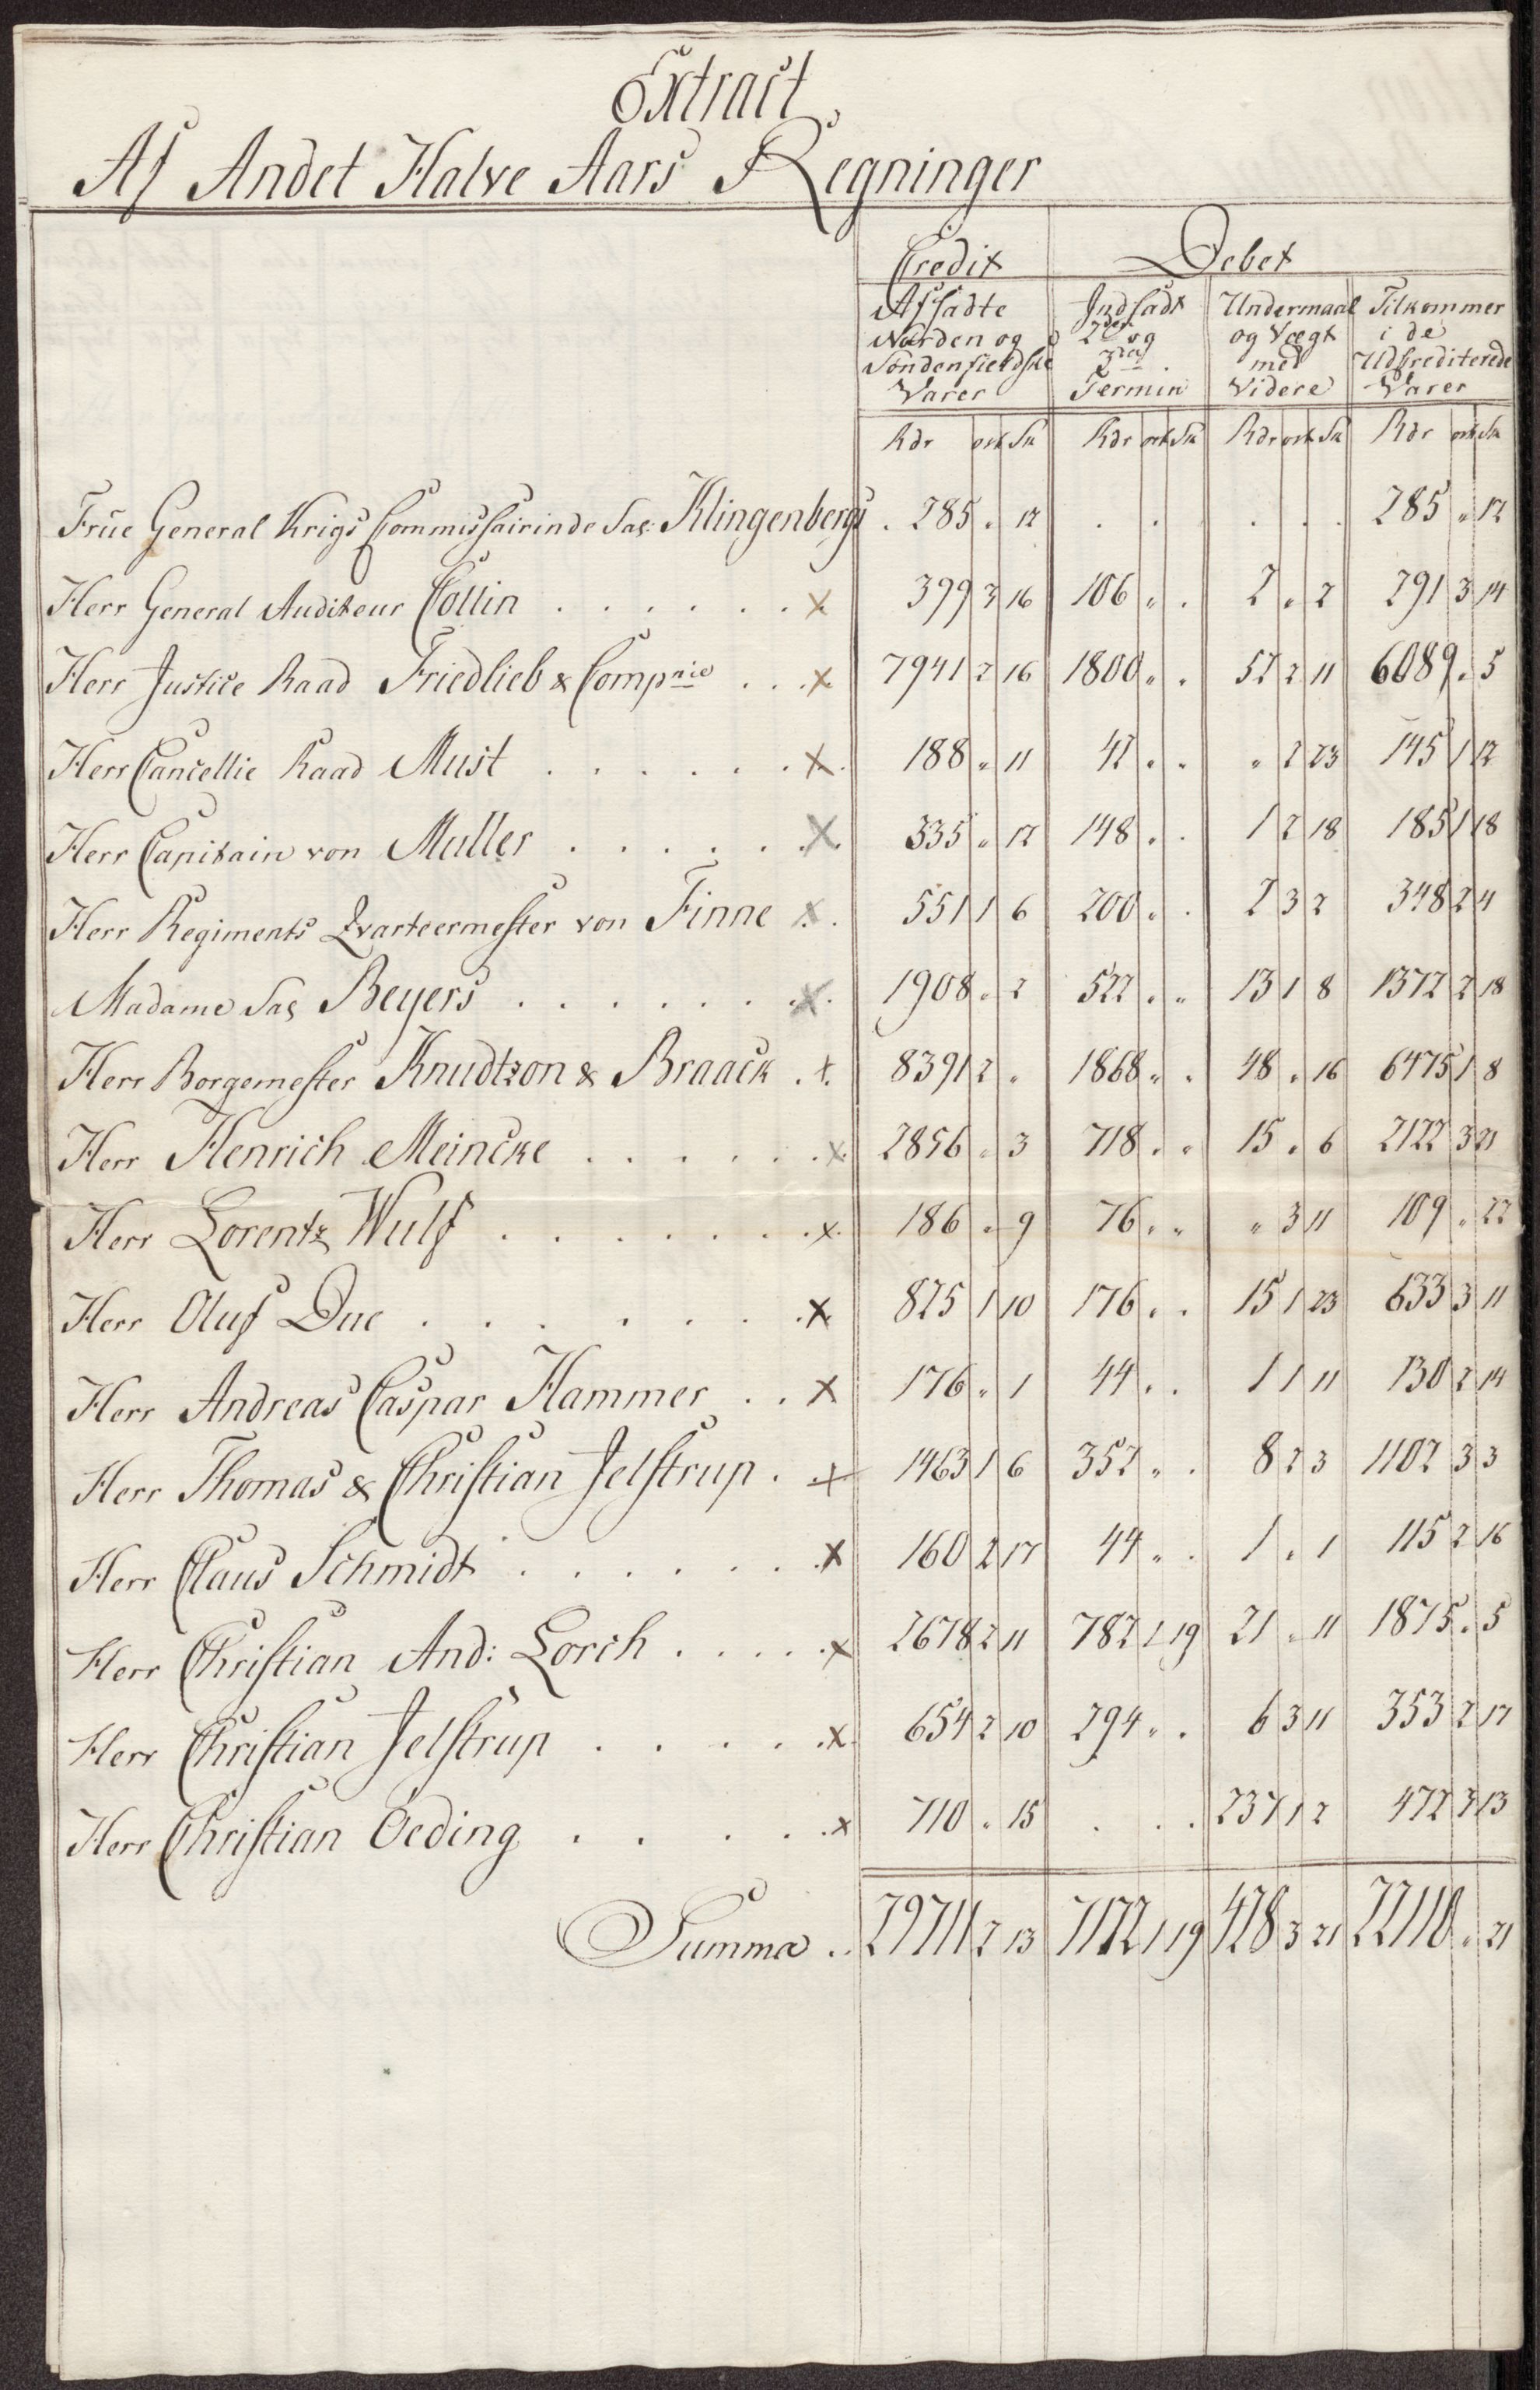 Extract
Af Andet Halve Aars Regninger
Credit Debet
Afsadte Norden og Søndenfieldske Varer
Indsadt 2den og 3die Termin
Undermaal og Vægt med Videre
Tilkommer i de Udkrediterede Varer
Rdr ort Sk Rdr ort Sk Rdr ort Sk Rdr ort Sk
Frue General Krigs Commissairinde Sal: Klingenbergs . 285 „ 12 . . . . . 285 „ 12
Herr General Auditeur Collin . . . . . . x 399 3 16 106 „ . 2 „ 2 291 3 14
Herr Justice Raad Friedlieb & Compnie . . . x 7941 2 16 1800 „ „ 52 2 11 6089 „ 5
Herr Cancellie Raad Must . . . . . . x . 188 „ 11 42 „ „ „ 2 23 145 1 12
Herr Capitain von Muller . . . . . . x . 335 „ 12 148 „ . 1 2 18 185 1 18
Herr Regiments Qvarteermester von Finne x . 551 1 6 200 „ . 2 3 2 348 2 4
Madame Sal Beyers . . . . . . . x . 1908 „ 2 522 „ „ 13 1 8 1372 2 18
Herr Borgemester Knudtzon & Braack . x . 8391 2 „ 1868 „ „ 48 „ 16 6475 1 8
Herr Henrich Meincke . . . . . . x 2856 „ 3 718 „ „ 15 „ 6 2122 3 21
Herr Lorentz Wulf . . . . . . . x 186 „ 9 76 „ „ „ 3 11 109 „ 22
Herr Oluf Due . . . . . . . x 825 1 10 176 „ . 15 1 23 633 3 11
Herr Andreas Caspar Hammer . . x 176 „ 1 44 „ . 1 1 11 130 2 14
Herr Thomas & Christian Jelstrup . x 1463 1 6 352 „ . 8 2 3 1102 3 3
Herr Claus Schmidt . . . . . . x 160 2 17 44 „ . 1 „ 1 115 2 16
Herr Christian And: Lorch . . . . . x 2678 2 11 782 1 19 21 „ 11 1875 „ 5
Herr Christian Jelstrup . . . . . x 654 2 10 294 „ . 6 3 17 353 2 17
Herr Christian Oeding . . . . . x 710 „ 15 . . . 237 1 2 472 3 13
Summa . . 29711 2 13 7172 1 19 428 3 21 22110 „ 21